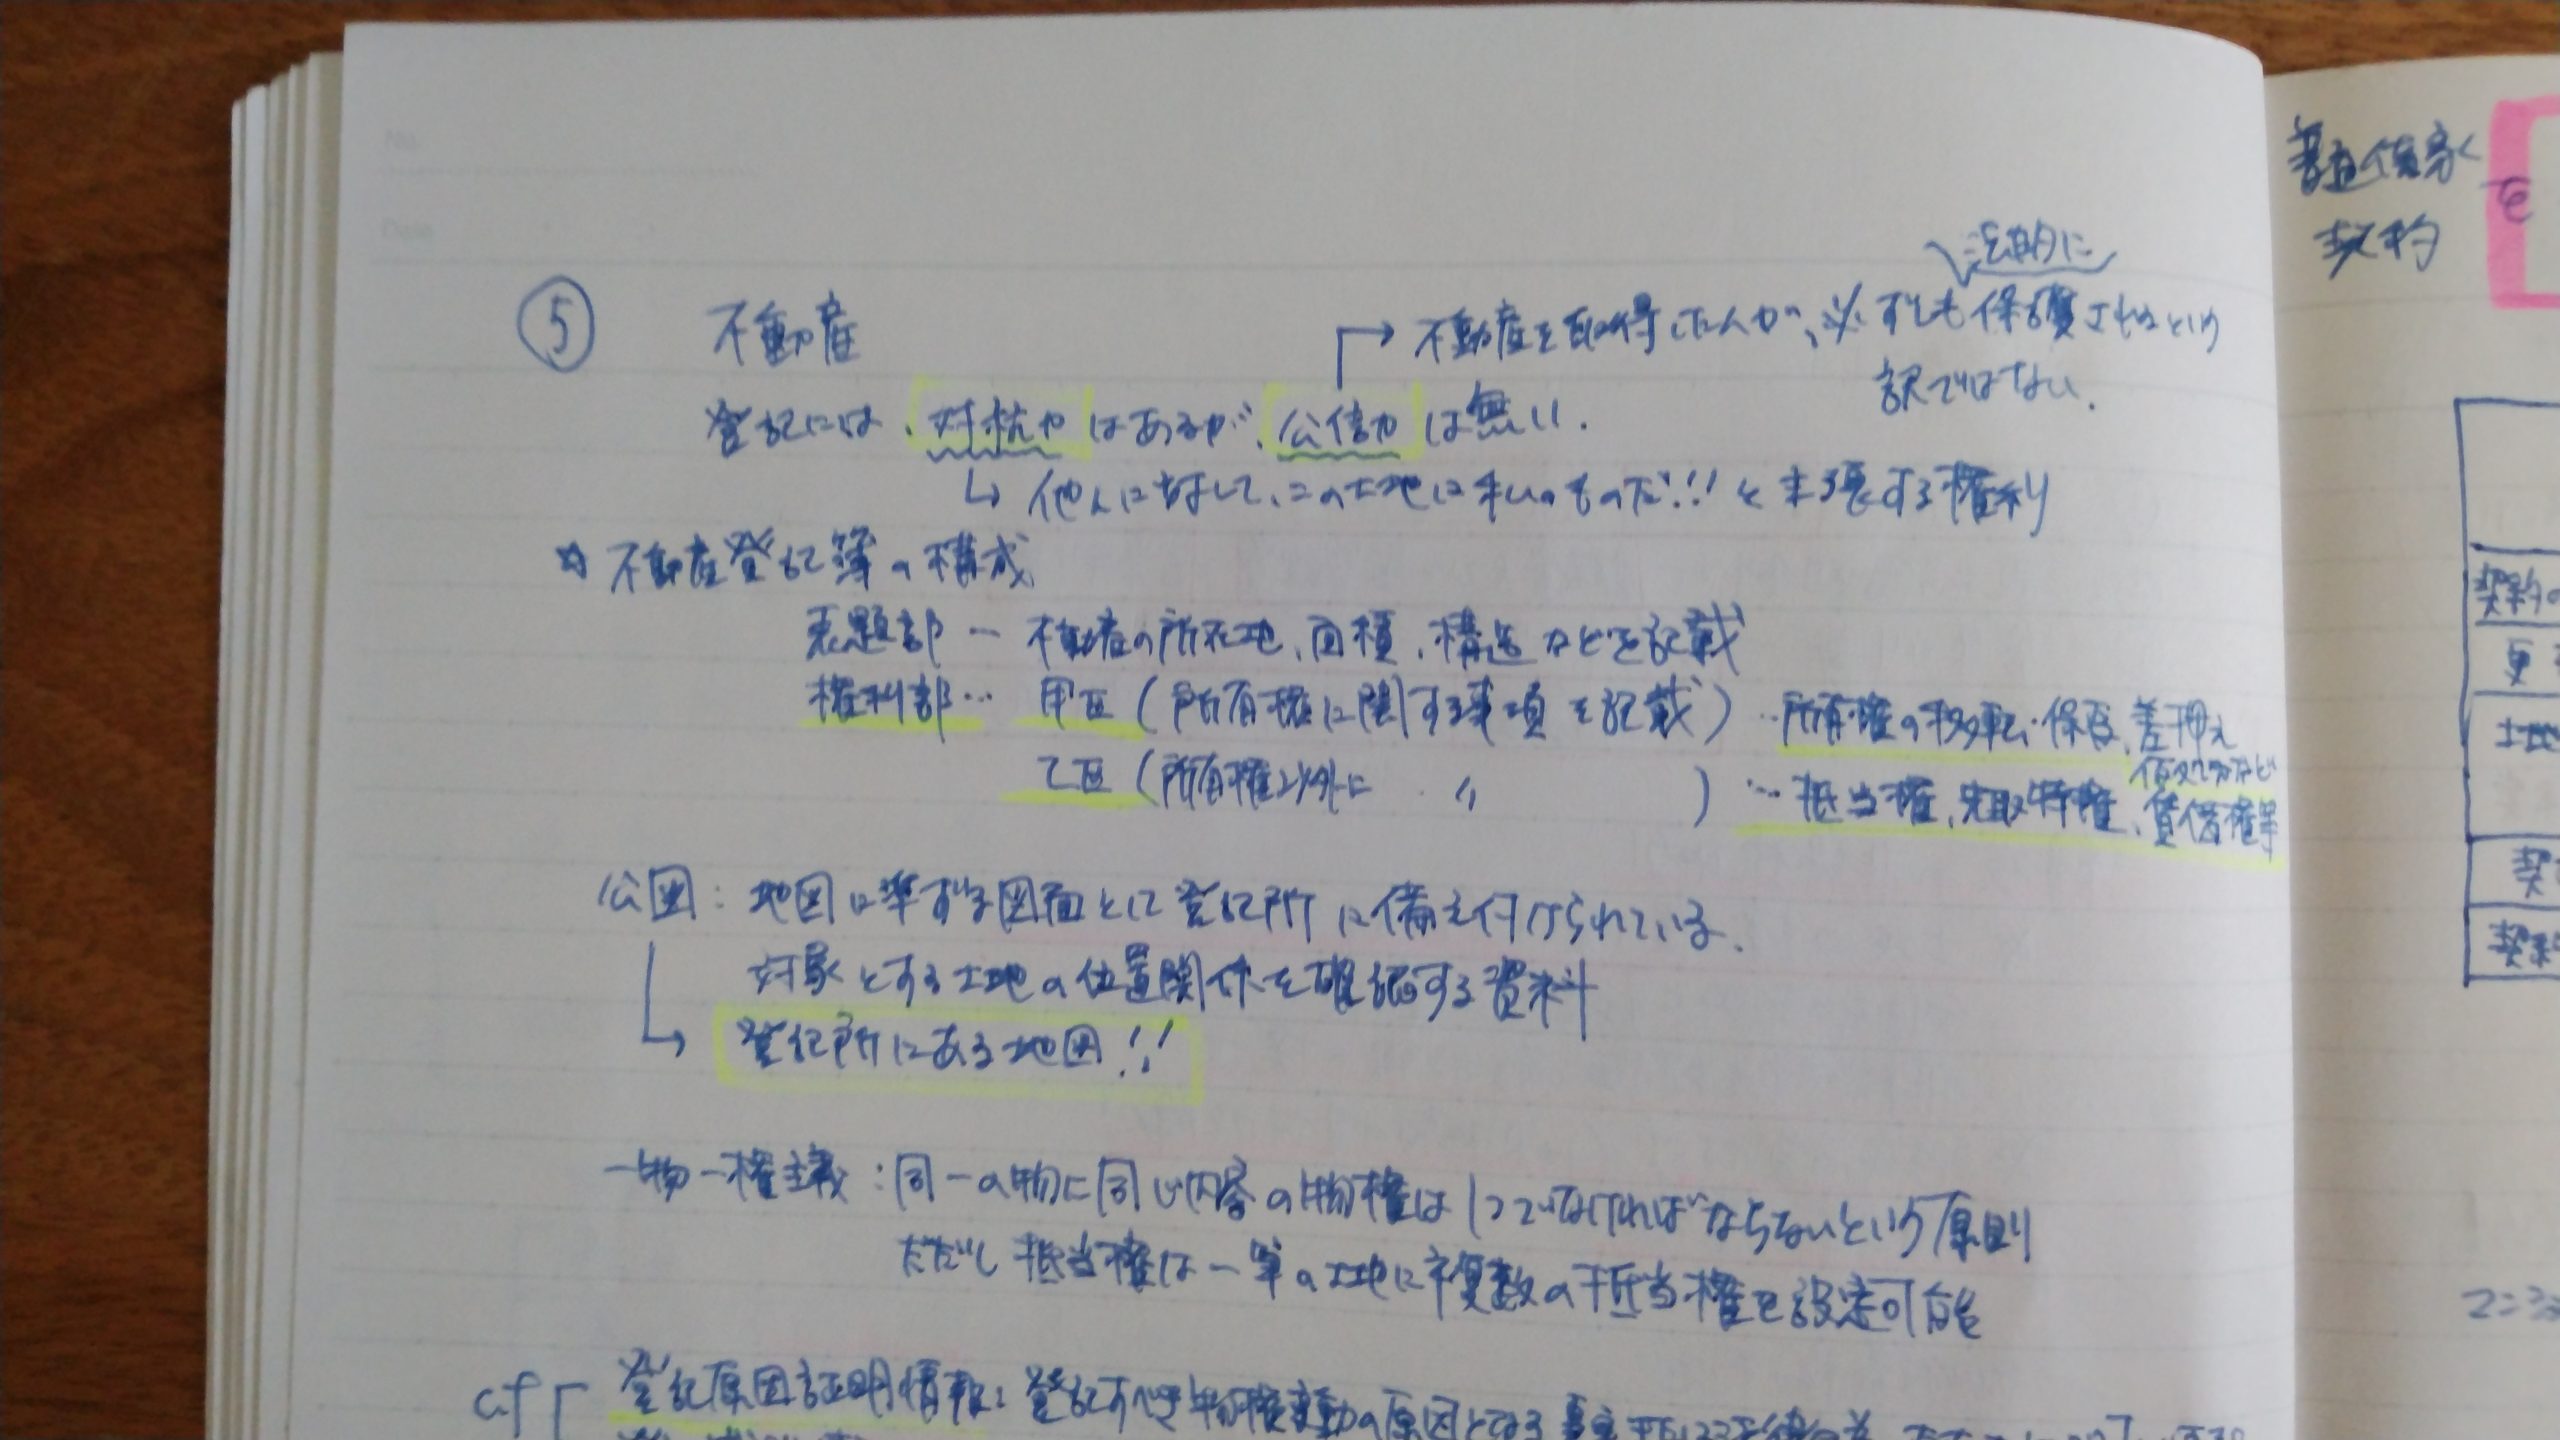 No.
Date
⑤ 不動産
法的に
→ 不動産を取得した人が、必ずしも保護されるという
訳ではない.
登記には、対抗力はあるが、公信力は無い.
↳ 他人に対して、この土地は私のものだ!! と主張する権利
☆ 不動産登記簿の構成
表題部 … 不動産の所在地、面積、構造などを記載
権利部… 甲区 (所有権に関する事項を記載) …所有権の移転・保存、差押え
仮処分など
乙区 (所有権以外に 〃 ) …抵当権、先取特権、賃借権等
公図: 地図に準ずる図面として登記所に備え付けられている.
対象とする土地の位置関係を確認する資料
→ 登記所にある地図!!
一物一権主義:同一の物に同じ内容の物権は1つでなければならないという原則
ただし 抵当権は一筆の土地に複数の抵当権を設定可能
cf 登記原因証明情報: 登記すべき物権変動の原因となる
普通借家
契約
を
契約の
更
土地
契
契約